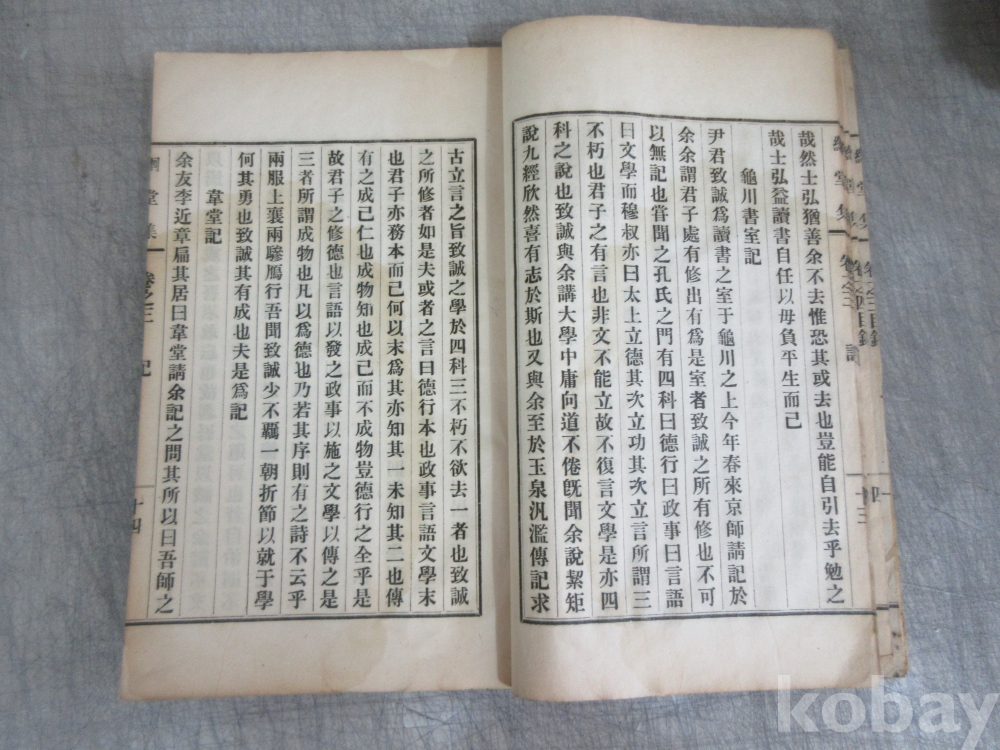 哉然士弘猶善余不去惟恐其或去也豈能自引去乎勉之
哉士弘益讀書自任以毋負平生而已
龜川書室記
尹君致誠爲讀書之室于龜川之上今年春來京師請記於
余余謂君子處有修出有爲是室者致誠之所有修也不可
以無記也嘗聞之孔氏之門有四科曰德行曰政事曰言語
曰文學而穆叔亦曰太上立德其次立功其次立言所謂三
不朽也君子之有言也非文不能立故不復言文學是亦四
科之說也致誠與余講大學中庸向道不倦旣聞余說絜矩
說九經欣然喜有志於斯也又與余至於玉泉汎濫傳記求
古立言之旨致誠之學於四科三不朽不欲去一者也致誠
之所修者如是夫或者之言曰德行本也政事言語文學末
也君子亦務本而已何以末爲其亦知其一未知其二也傳
有之成己仁也成物知也成己而不成物豈德行之全乎是
故君子之修德也言語以發之政事以施之文學以傳之是
三者所謂成物也凡以爲德也乃若其序則有之詩不云乎
兩服上襄兩驂鴈行吾聞致誠少不羈一朝折節以就于學
何其勇也致誠其有成也夫是爲記
韋堂記
余友李近章扁其居曰韋堂請余記之問其所以曰吾師之
堂集 卷之三 記 十四
堂集
十三
kobay